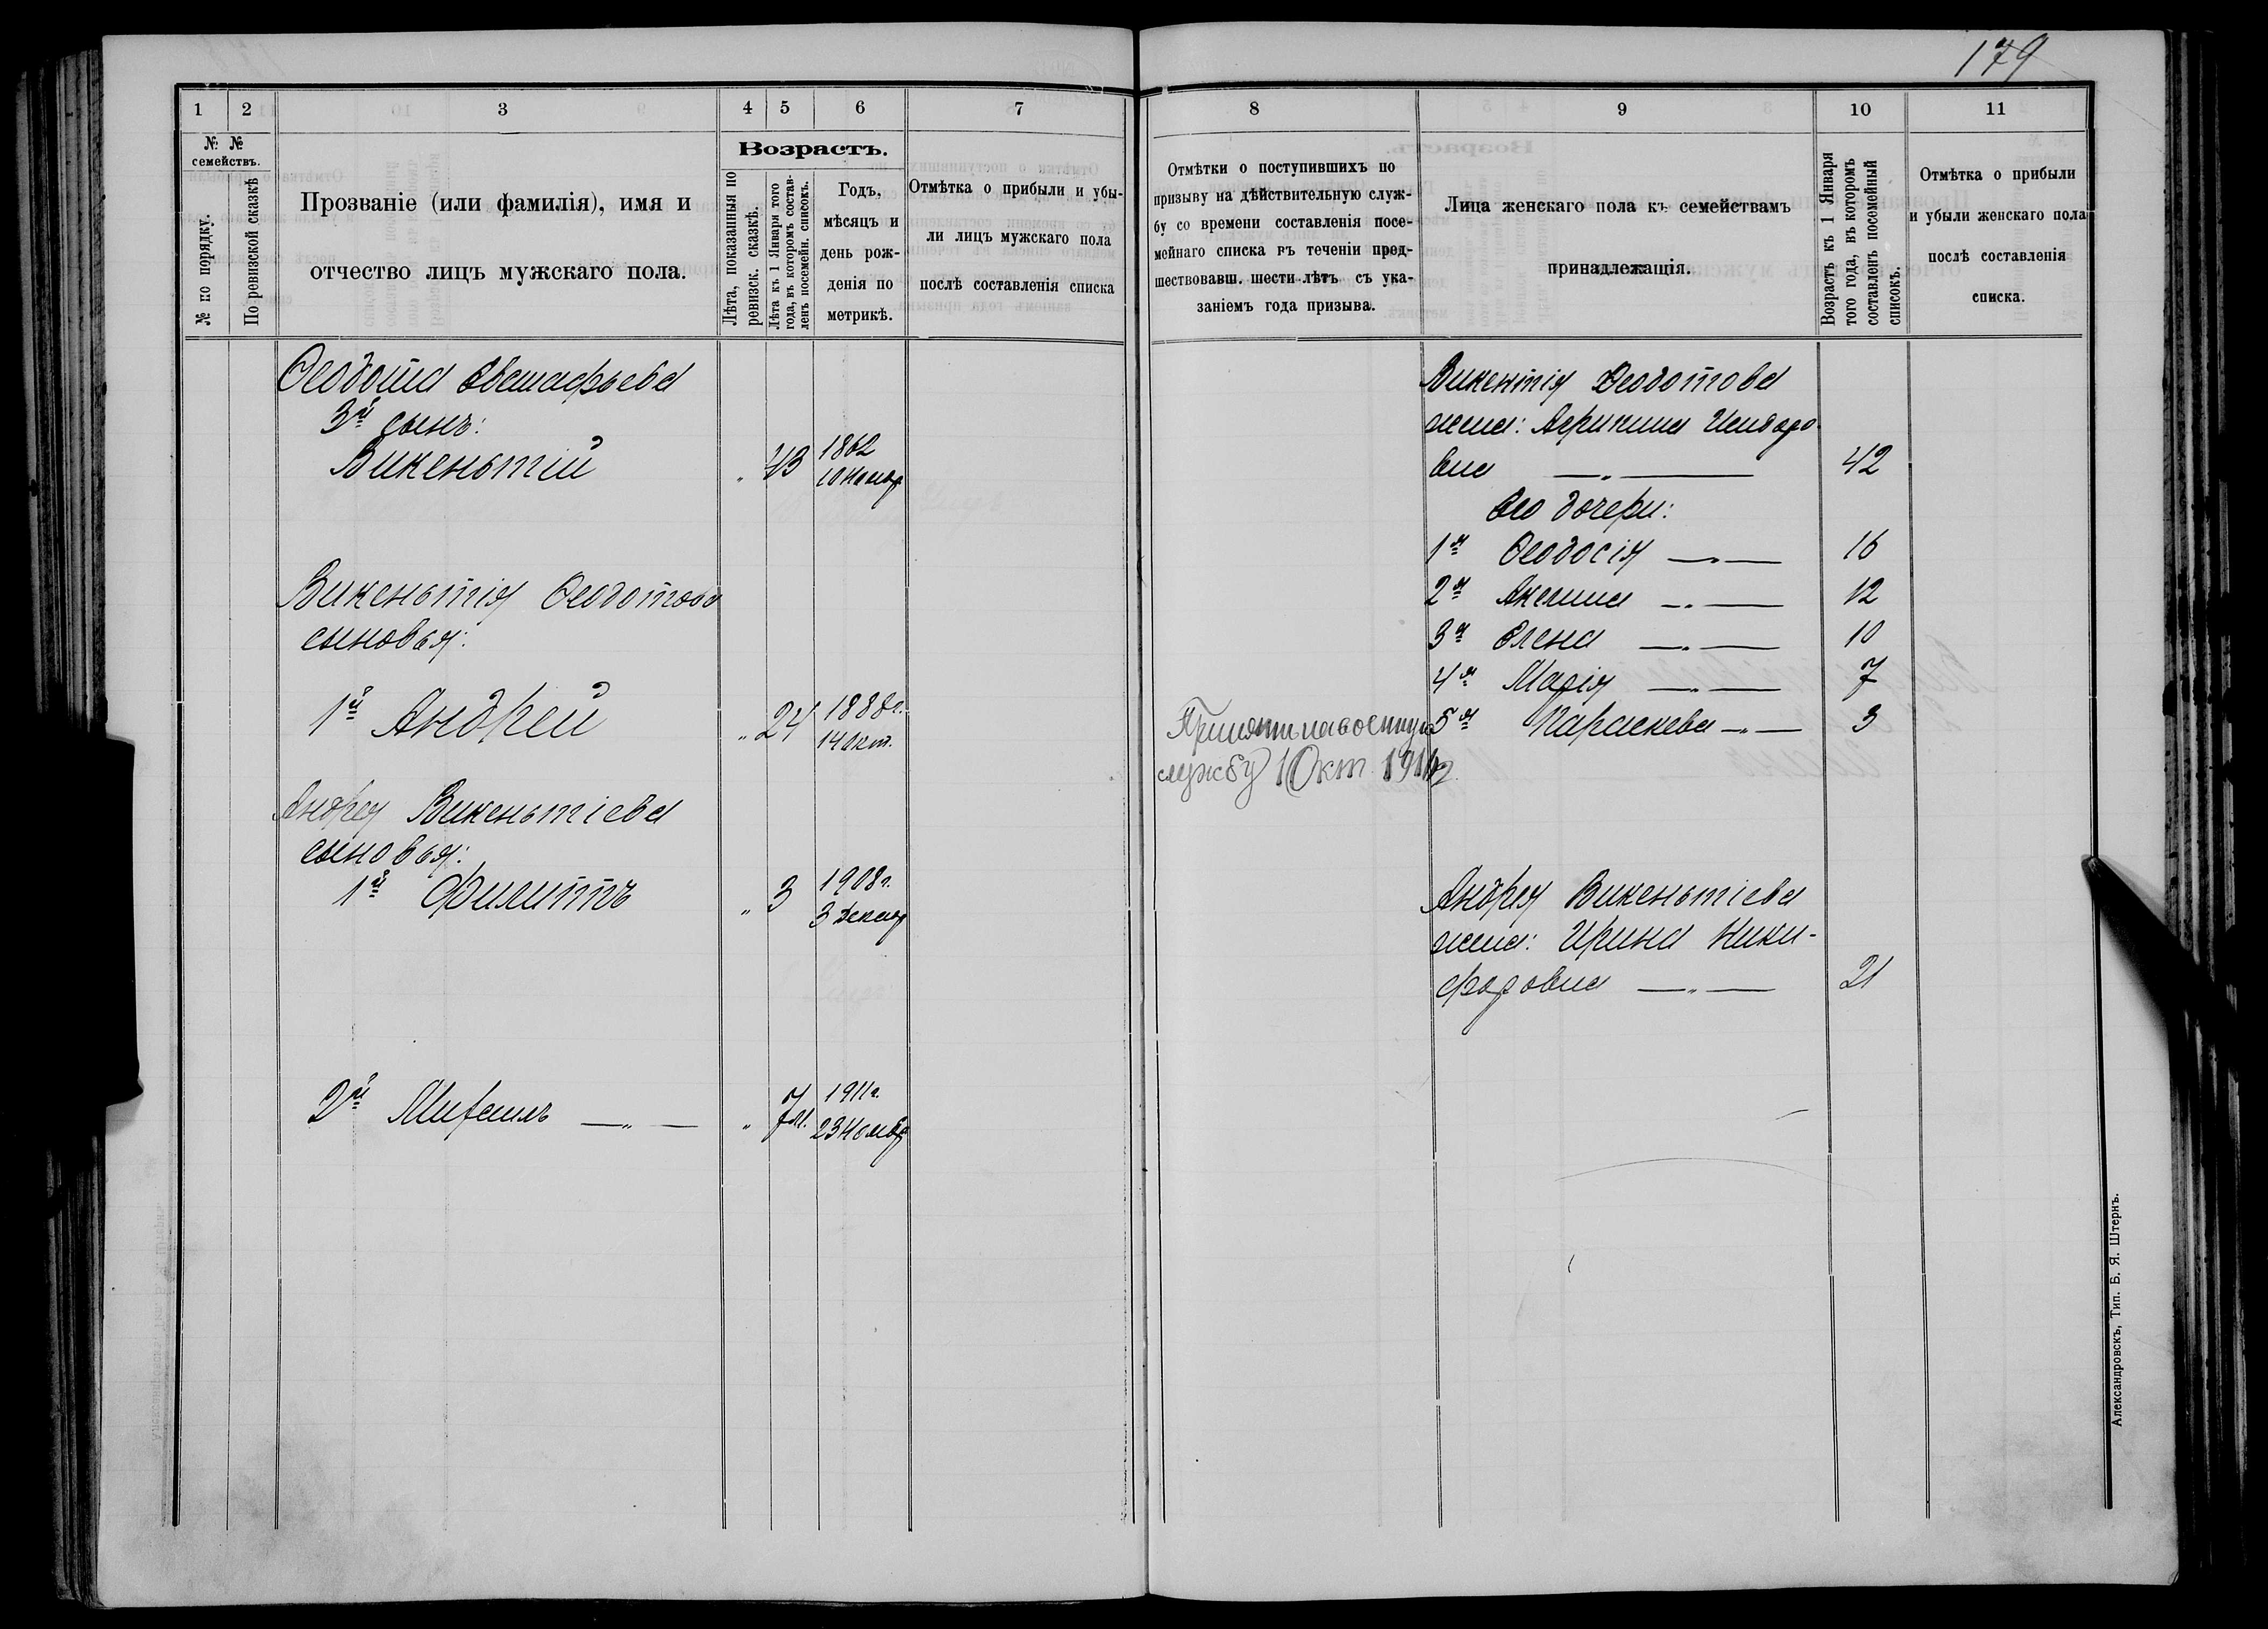 179
1 2 3 4 5 6 7
№ № семействъ.
№ по порядку.
По ревизской сказкѣ
Прозваніе (или фамилія), имя и
отчество лицъ мужскаго пола.
Возрастъ.
Лѣта, показанныя по
ревизск. сказкѣ.
Лѣта къ 1 Января того
года, въ которомъ состав-
ленъ посемейн. списокъ.
Годъ,
мѣсяцъ и
день рож-
денія по
метрикѣ.
Отмѣтка о прибыли и убы-
ли лицъ мужскаго пола
послѣ составленія списка
Ѳеодота Евстафьева
3й сынъ:
Викентьтій " 43 1862
10 Ноябр
Викеньтія Ѳеодотова
сыновья:
1й Андрей " 24 1888г.
14 Окт.
Андрея Викеньтіева
сыновья:
1й Филиппъ " 3 1908г.
3 Декабр
2й Михаилъ — " — " 1911г.
23 Ноябр
8 9 10 11
Отмѣтки о поступившихъ по
призыву на дѣйствительную служ-
бу со времени составленія посе-
мейнаго списка въ теченіи пред-
шествовавш. шести лѣтъ съ ука-
заніемъ года призыва.
Лица женскаго пола къ семействамъ
принадлежащія.
Возрастъ къ 1 Января
того года, въ которомъ
составленъ посемейный
списокъ.
Отмѣтка о прибыли
и убыли женскаго пола
послѣ составленія
списка.
Викентія Ѳеодотова
жена: Агрипина
вна — " — 42
Его дочери:
1я Ѳеодосія — " — 16
2я Акелина — " — 12
3я Елена — " — 10
4я Марія — " — 7
5я Параскева — " — 3
Принятъ на военную
службу 1 Окт.
Андрея Викеньтіева
жена: Ирина Ники-
форовна — " — 21
Александровскъ, Тип. Б. Я. Штернъ.